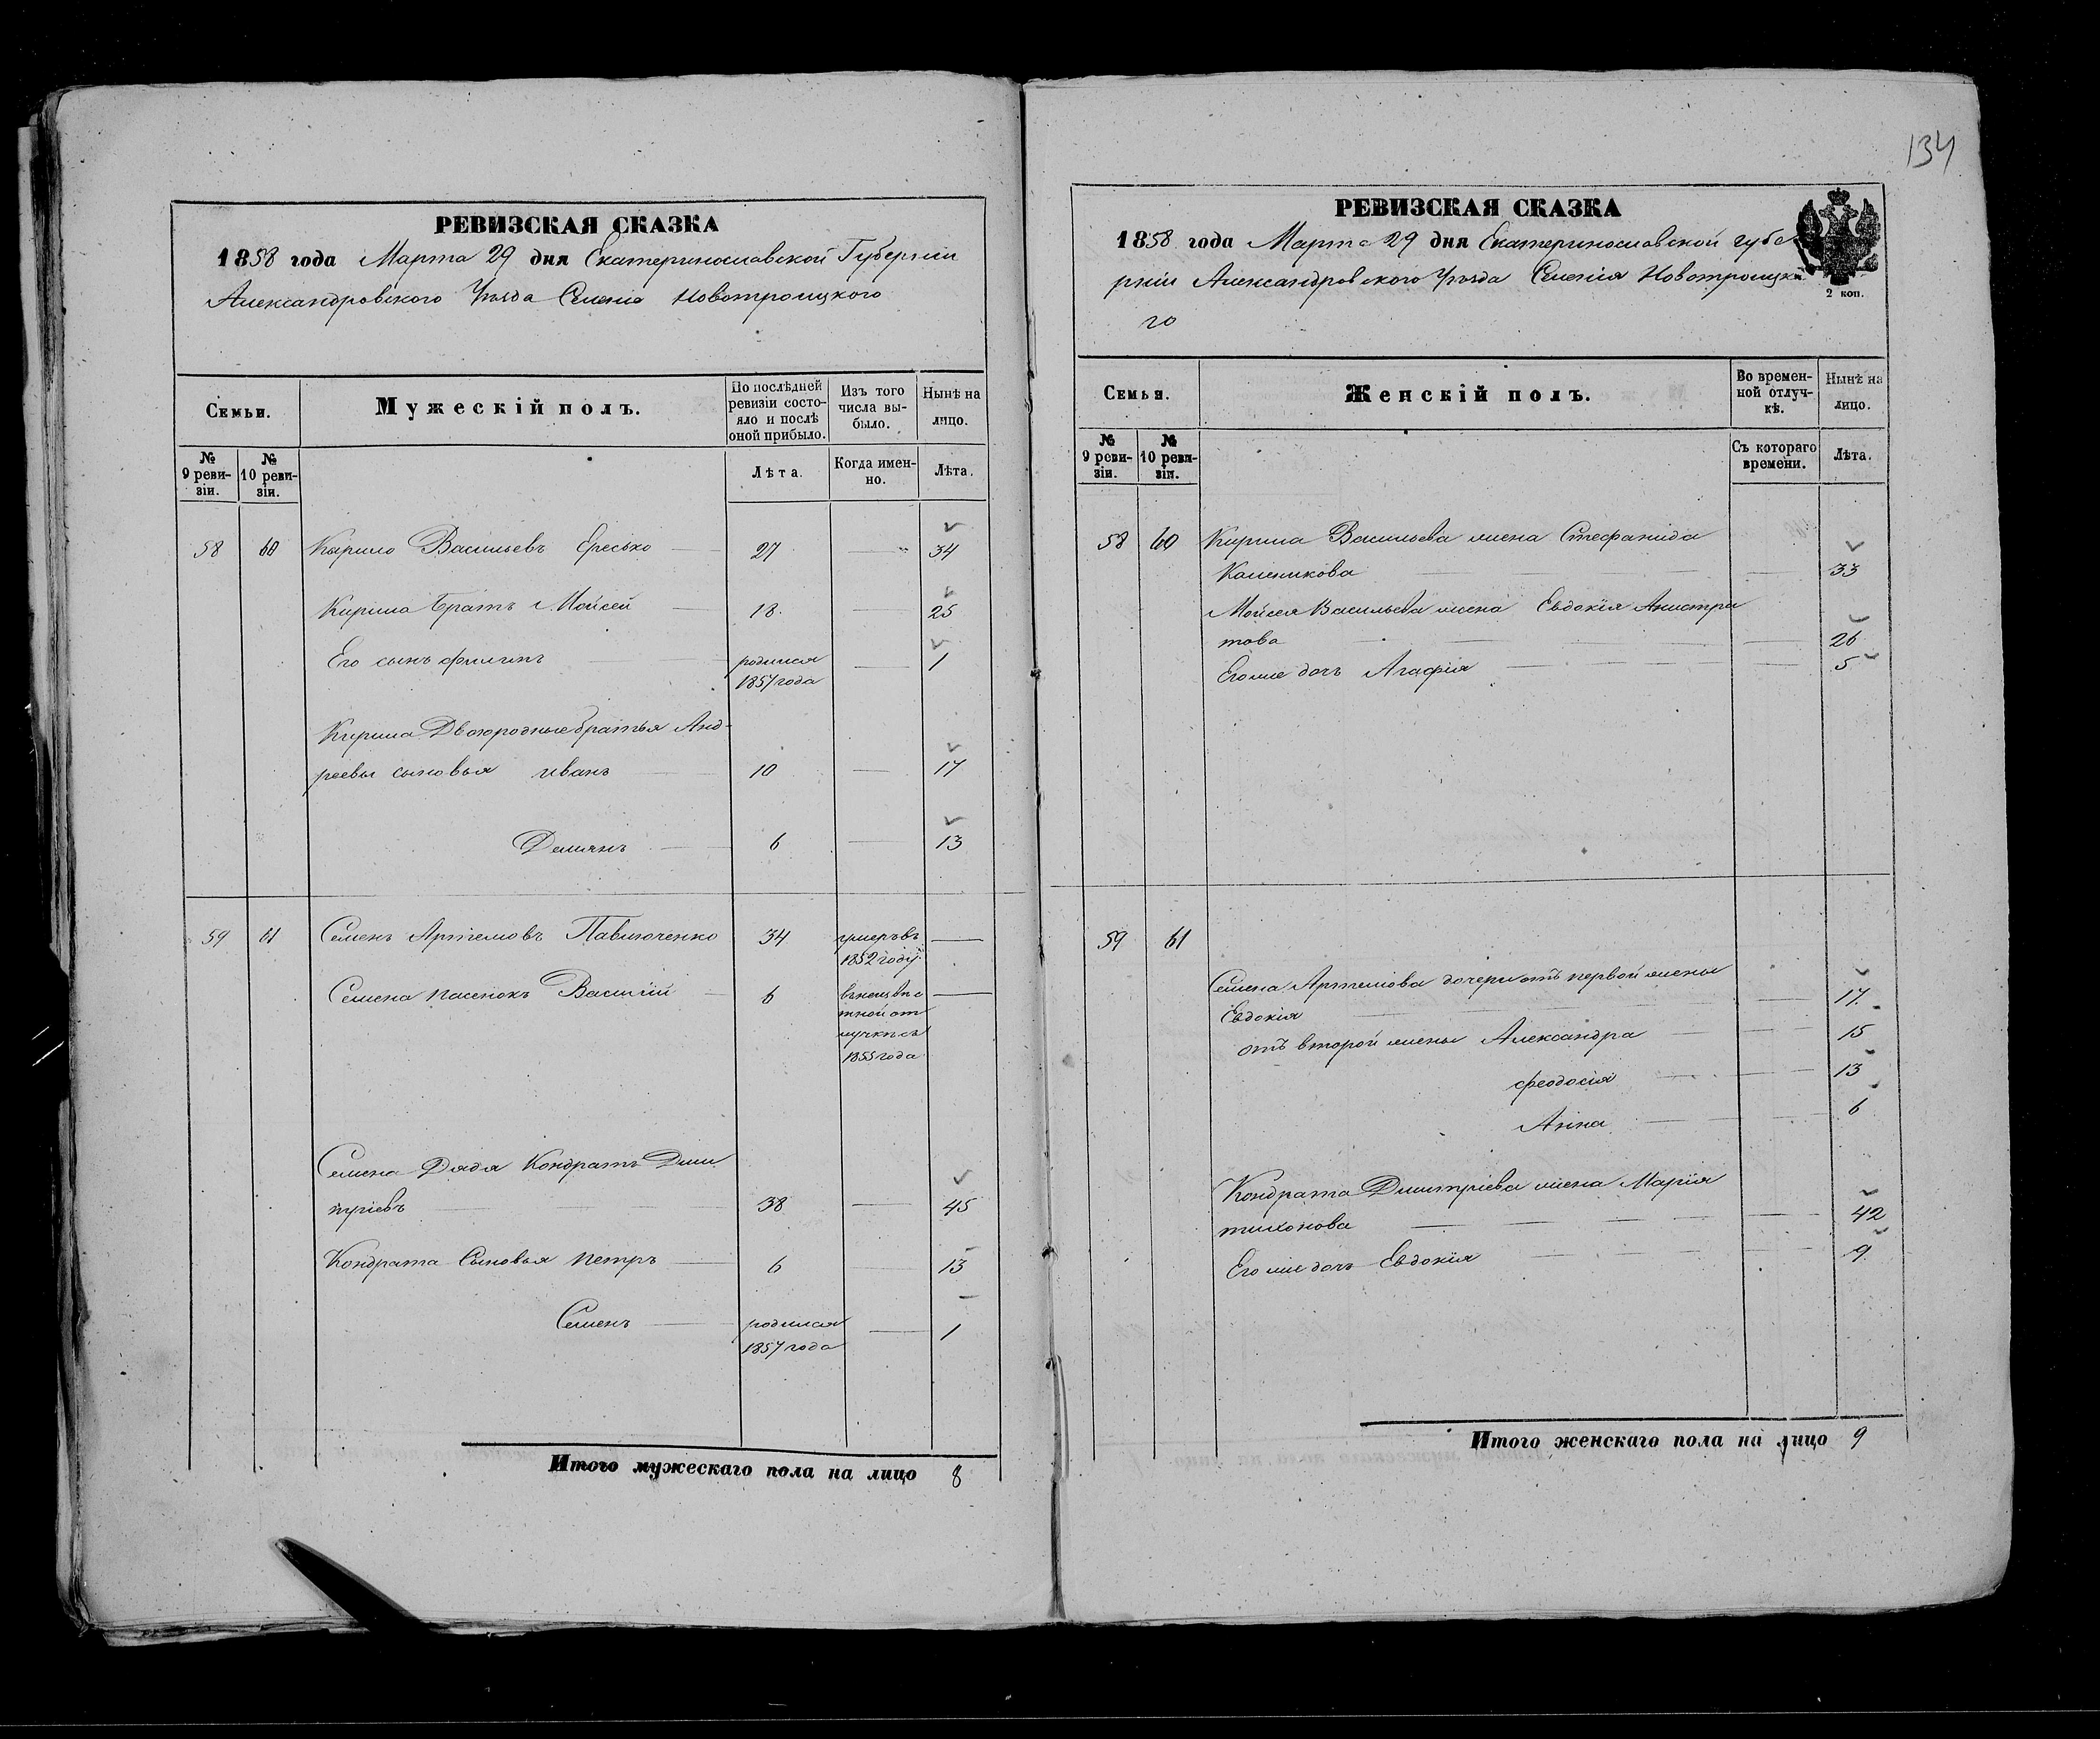 134
РЕВИЗСКАЯ СКАЗКА
1858 года Марта 29 дня Екатеринославской Губернии
Александровского Уезда Селенія Новотроицкого
Семьи.
Мужескій полъ.
По послѣдней ревизіи состояло и послѣ оной прибыло.
Изъ того числа выбыло.
Нынѣ на лицо.
№ 9 ревизіи.
№ 10 ревизіи.
Лѣта.
Когда именно.
Лѣта.
58 60 Кирило Васильевъ Ересько 27 34
Кирила братъ Мойсей 18 25
Его сынъ Филипъ родился 1857 года 1
Кирила Двоюродные братья Анд-
реевы сыновья Иванъ 10 17
Демянъ 6 13
59 61 Семенъ Артемовъ Павлюченко 34 умеръ въ 1852 году
Семена пасенокъ Василій 6
в неизвѣс
тной от
лучкѣ съ
1855 года
Семена Дядя Кондратъ Дми
тріевъ 38 45
Кондрата Сыновья Петръ 6 13
Семенъ родился 1857 года 1
Итого мужескаго пола на лицо 8
РЕВИЗСКАЯ СКАЗКА
1858 года Марта 29 дня Екатеринославской губе
рніи Александровского Уезда Селенія Новотроицка
го
2 коп.
Семья.
Женскій полъ.
Во временной отлучкѣ.
Нынѣ на лицо.
№ 9 ревизіи.
№ 10 ревизіи.
Съ котораго времени.
Лѣта.
58 60 Кирила Васильева жена Стефанида
33
Мойсея Васильева жена Евдокія Анистра
това 26
Его же дочь Агафія 5
59 61
Семена Артемова дочери отъ первой жены
Евдокія 17
отъ второй жены Александра 15
Феодосія 13
Анна 6
Кондрата Дмитріева жена Марія
тихонова 42
Его же дочь Евдокія 9
Итого женскаго пола на лицо 9